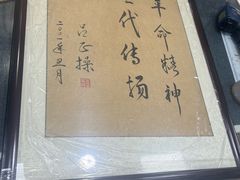 革命精神
代传扬
二〇〇一年五月
吕正操